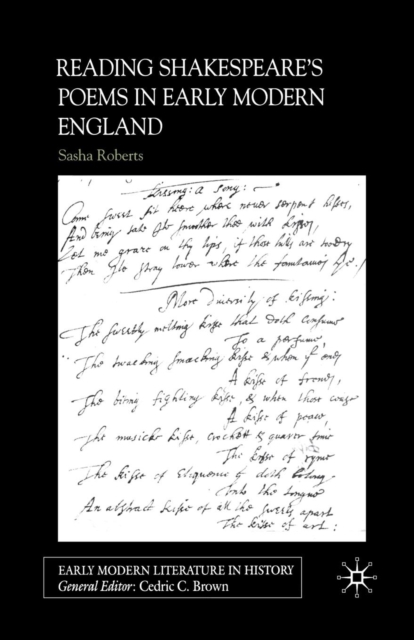 READING SHAKESPEARE'S
POEMS IN EARLY MODERN
ENGLAND
Sasha Roberts
Kissing: a Song:
Come sweet sit heere where never serpent hisses,
And being sate Ile smoother thee with kisses,
Let me graze on thy lips, if those hills are
Then Ile stray lower where the fountaines lye:/
More Diversity of kissing:
The sweetly melting kisse that doth consume
To a perfume,
The smacking kisse & when
A kisse of
The biting fighting kisse, & when those cease
A kisse of peace,
The musicke kisse, crochet & quaver time
The kisse of ryme
The kisse of Eloquence doth belong
Unto the tongue
An abstract kisse of all the sweets apart
The kisse of art:
EARLY MODERN LITERATURE IN HISTORY
General Editor: Cedric C. Brown